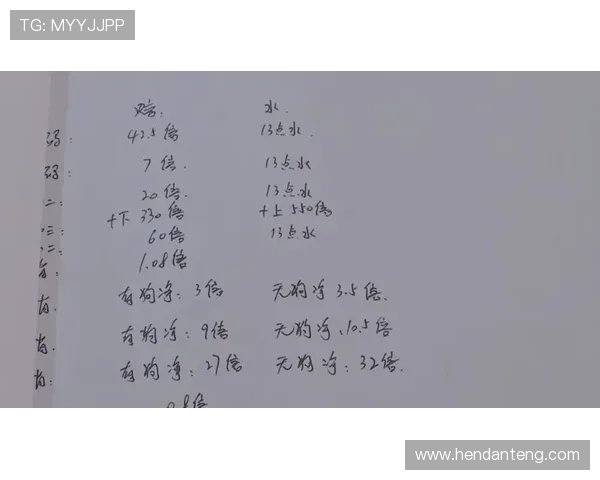 TG: MYYJJPP
赔: 水.
码: 42.5倍 13点水.
码: 7倍. 13点水
二: 20倍. 13点水
十下 330倍 十上 550倍
三: 60倍 13点水
二: 1.08倍
有狗净: 3倍 无狗净 3.5倍.
有. 有狗净: 9倍 无狗净、10.5倍
有: 有狗净: 27倍 无狗净: 32倍.
www.hendanteng.com